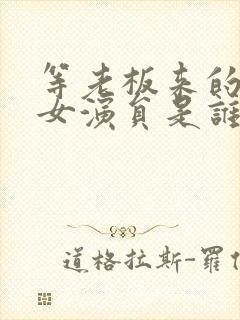 等老板来的
女演员是誰
道格拉斯-羅